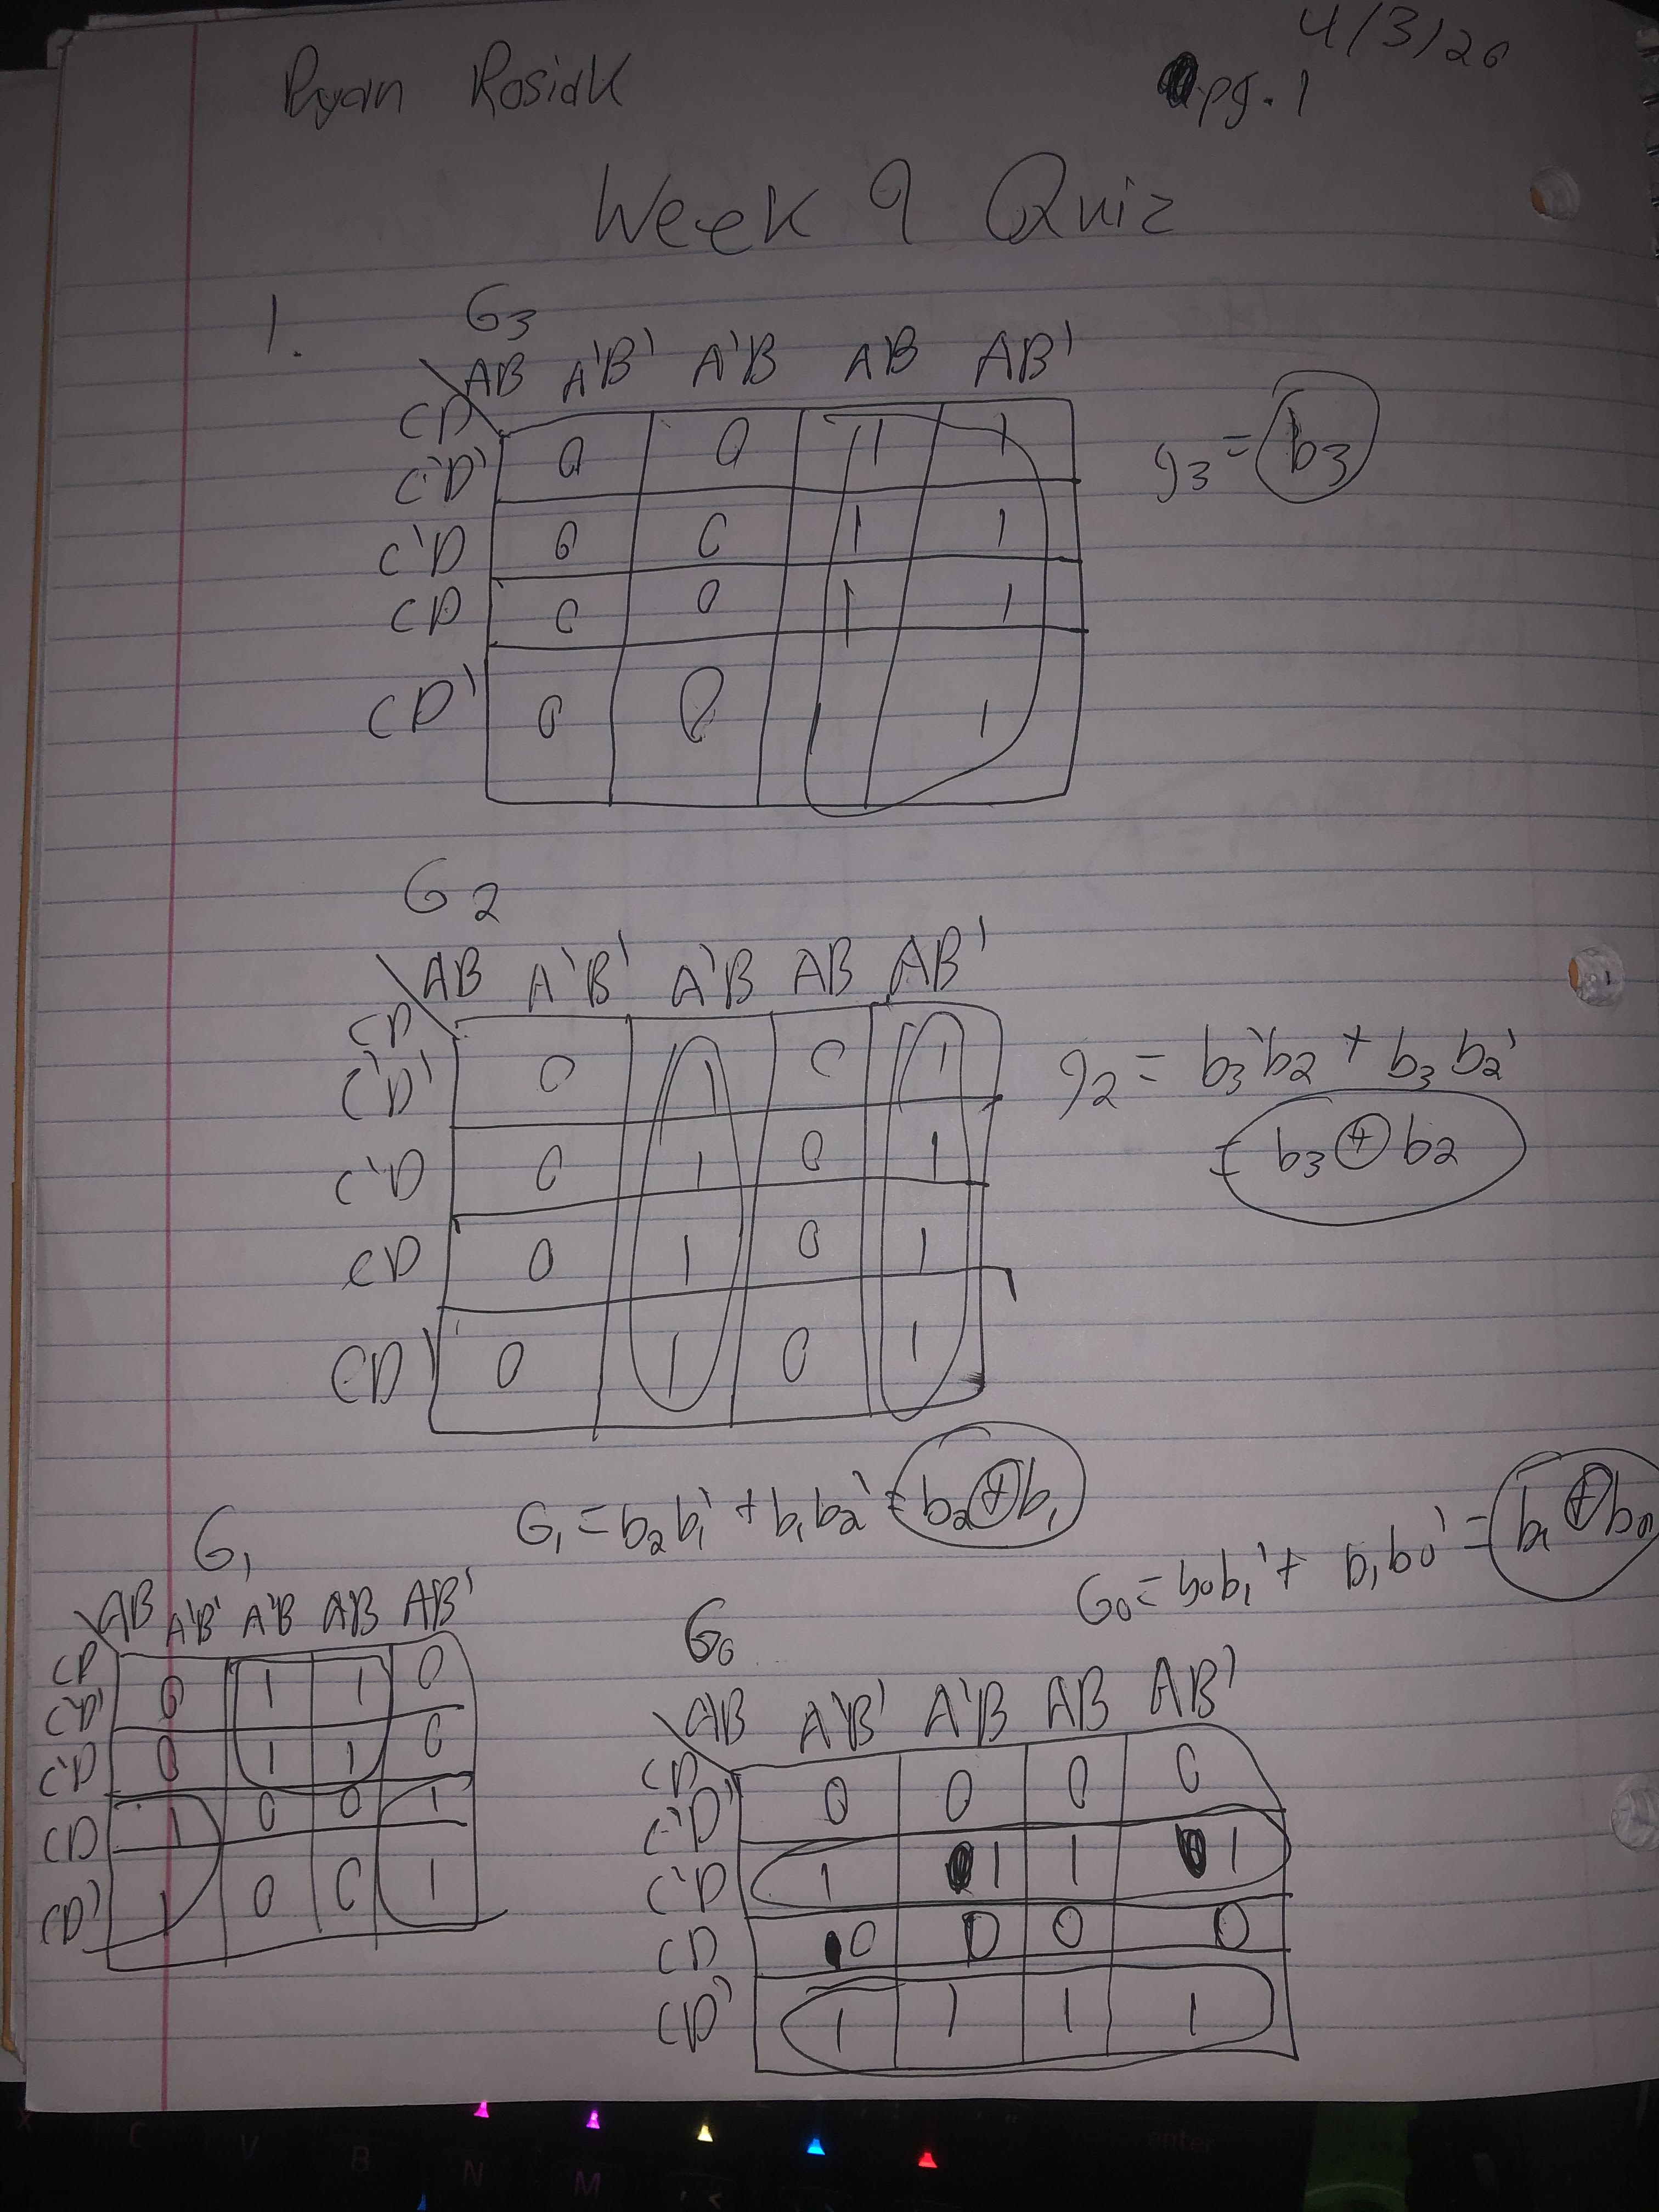 4/3/20
Ryan Rosiak pg. 1
Week 9 Quiz
1. G3
AB A'B' A'B AB AB'
CD
C'D' 0 0 1 1
C'D 0 0 1 1
CD 0 0 1 1
CD' 0 0 1 1
g3 = b3
G2
AB A'B' A'B AB AB'
CD
C'D' 0 1 0 1
C'D 0 1 0 1
CD 0 1 0 1
CD' 0 1 0 1
g2 = b3'b2 + b3b2'
= b3 ⊕ b2
G1
G1 = b2b1' + b1b2' = b2 ⊕ b1
AB A'B' A'B AB AB'
CD
C'D' 0 1 1 0
C'D 0 1 1 0
CD 1 0 0 1
CD' 1 0 0 1
G0 = b0b1' + b1b0' = b1 ⊕ b0
G0
AB A'B' A'B AB AB'
CD
C'D' 0 0 0 0
C'D 1 1 1 1
CD 0 0 0 0
CD' 1 1 1 1
C V B N M , <
enter